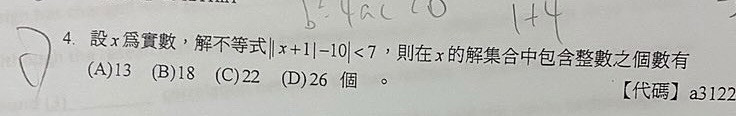 b²-4ac<0
1+4
4. 設x為實數，解不等式||x+1|-10|<7，則在x的解集合中包含整數之個數有
(A)13 (B)18 (C)22 (D)26 個。
【代碼】a3122